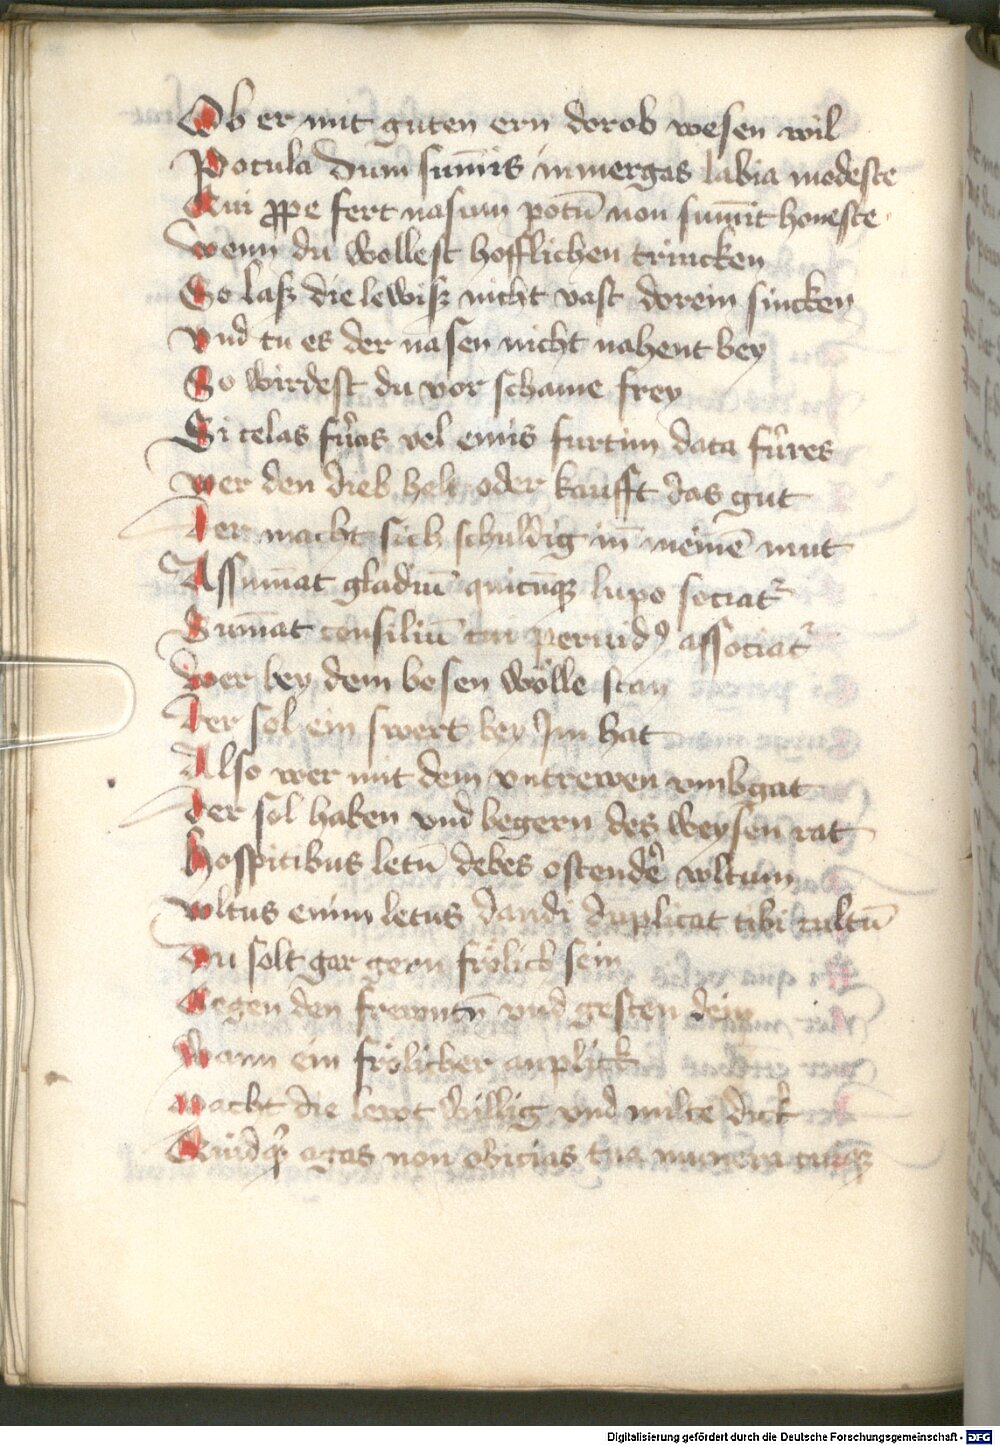 Ob er mit guten ern dorob wesen wil
Pocula dum sum̄is inmergas labia modeste
Qui ꝓpe fert nasum potū non sum̄it honeste
wenn du wollest hofflichen trincken
So laß die lewiß nicht vast dorein sincken
vnd tu es der nasen nicht nahent bey
So wirdest du vor schame frey
Si celas fures vel emis furtim data fures
wer den dieb helt oder kaufft das gut
Der macht sich schuldig in meinē mut
Assum̄at gladiū quicūqꝫ lupo sociat᷑
Sum̄at consiliū cui perfidꝰ associat᷑
wer bey dem bosen wölle stan
Der sol ein swert bey Im hat
Also wer mit dem vntrewen vmbgat
Der sol haben vnd begern des weysen rat
Hospitibus letū debes ostendere vultum
vultus enim letus dandi duplicat tibi cultū
Du solt gar gern frölich sein
Gegen den frewntn̄ vnd gesten dein
Wann ein frölicher anplick
Macht die lewt willig vnd milte dick
Quidqꝫ agas non obicias tua munera cuiqꝫ
Digitalisierung gefördert durch die Deutsche Forschungsgemeinschaft - DFG